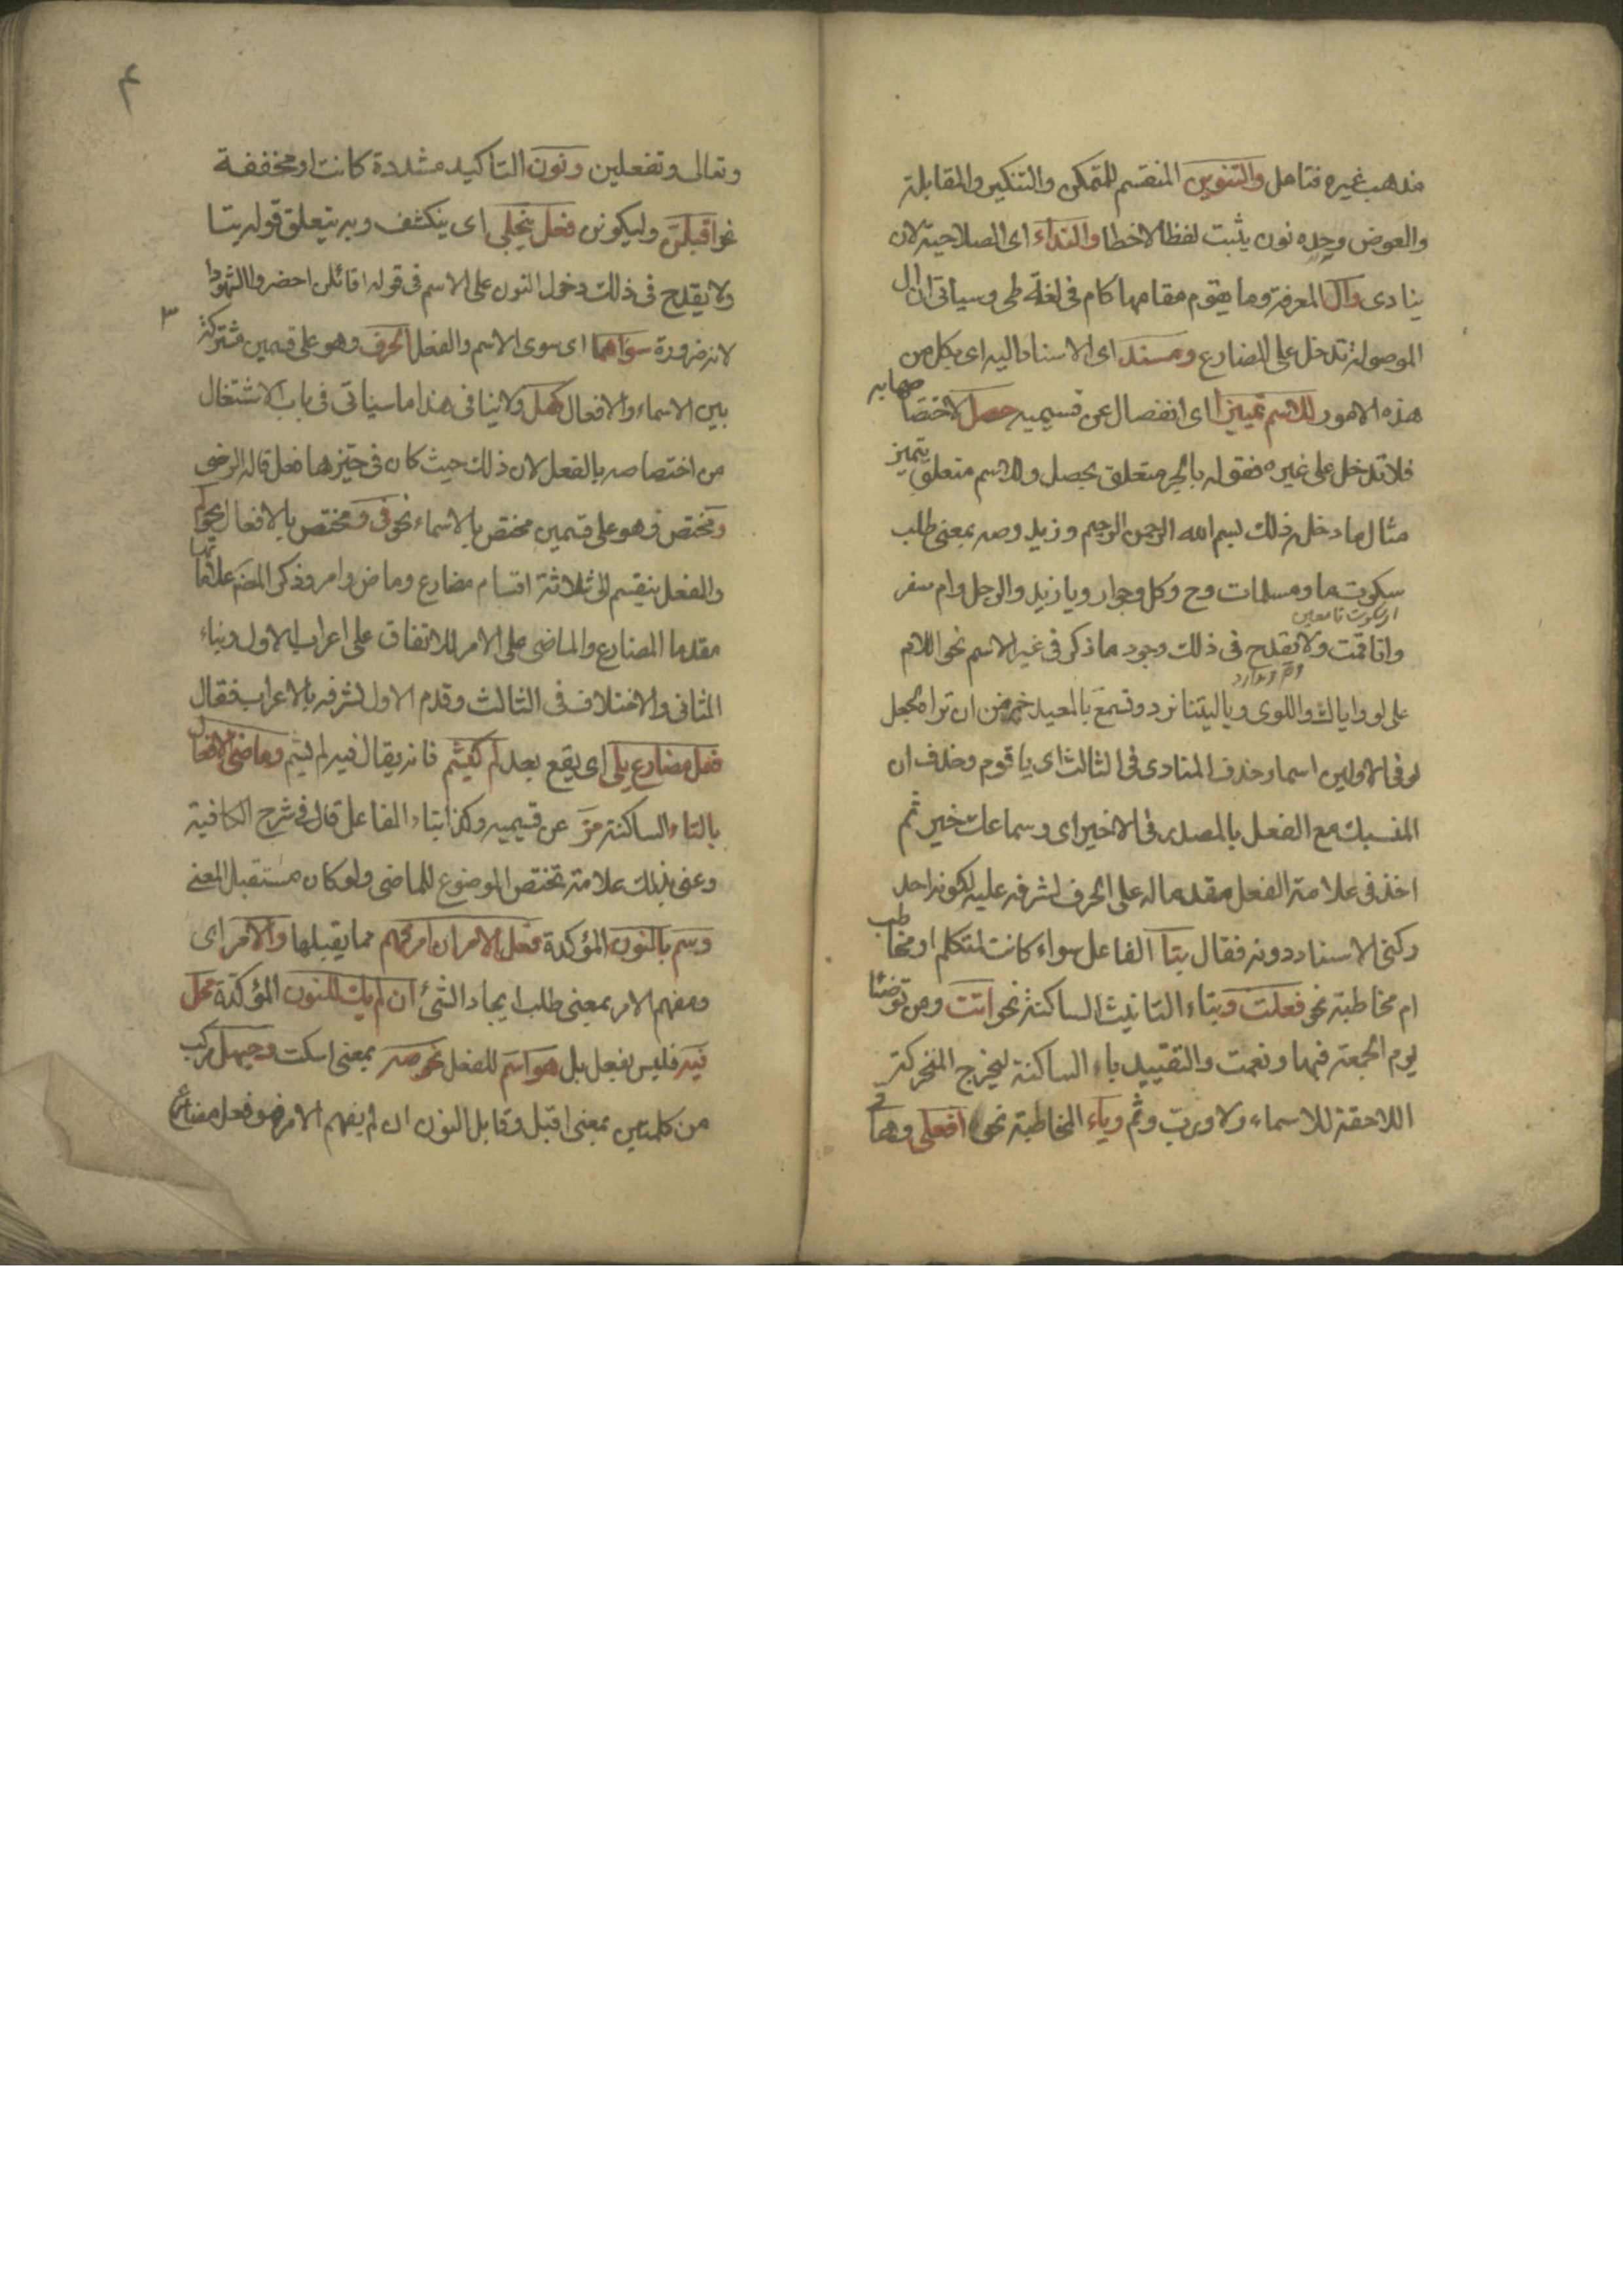 مذهب غيره فتامل والتنوين المنقسم للتمكن والتنكير والمقابلة
والعوض وحده نون يثبت لفظا لا خطا والنداء اى الصلاحية لان
ينادى وال المعرفة وما يقوم مقامها كام فى لغة طى وسياتى ان ال
الموصولة تدخل على المضارع ومسند اى الاسناد اليه اى بكل من
هذه الامور للاسم تمييز اى انفصال عن قسيميه حصل لاختصاصها به
فلا تدخل على غيره فقوله بالجر متعلق بحصل وللاسم متعلق بتميز
مثال ما دخله ذلك بسم الله الرحمن الرحيم وزيد وصه بمعنى طلب
سكوت ما ومسلمات وح وكل وجوار ويا زيد والرجل وام سفر
وانا قمت ولا يقدح فى ذلك وجود ما ذكر فى غير الاسم نحو اللام
على لو واياك واللوى ويا ليتنا نرد وتسمع بالمعيدى خير من ان تراه لجعل
لو فى الاولين اسما وحذف المنادى فى الثالث اى يا قوم وحذف ان
المنسبك مع الفعل بالمصدر فى الاخير اى وسماعك خير ثم
اخذ فى علامة الفعل مقدما له على الحرف لشرفه عليه لكونه احد
ركنى الاسناد دونه فقال بتا الفاعل سواء كانت لمتكلم او مخاطب
ام مخاطبة نحو فعلت وبتاء التانيث الساكنة نحو اتت ومن توضأ
يوم الجمعة فبها ونعمت والتقييد بالساكنة ليخرج المتحركة
اللاحقة للاسماء ولا وربّ وثم وياء المخاطبة نحو افعلى وهاتى
وتعالى وتفعلين ونون التاكيد مشددة كانت او مخففة
نحو اقبلنّ وليكونن فعل ينجلى اى ينكشف وبه يتعلق قوله بتا
ولا يقدح فى ذلك دخول النون على الاسم فى قوله اقائلن احضروا الشهودا
لانه ضرورة سواهما اى سوى الاسم والفعل الحرف وهو على قسمين مشترك
بين الاسماء والافعال كهل ولا ينافى هذا ما سياتى فى باب الاشتغال
من اختصاصه بالفعل لان ذلك حيث كان فى حيزها فعل قاله الرضى
ومختص وهو على قسمين مختص بالاسماء نحو فى ومختص بالافعال نحو لم
والفعل ينقسم الى ثلاثة اقسام مضارع وماض وامر وذكر المص علاماتها
مقدما المضارع والماضى على الامر للاتفاق على اعراب الاول وبناء
الثانى والاختلاف فى الثالث وقدم الاول لشرفه بالاعراب فقال
فعل مضارع يلى اى يقع بعد لم كيشم فانه يقال فيه لم يشم وماضى الافعال
بالتاء الساكنة مز عن قسيميه وكذا بتاء الفاعل قال فى شرح الكافية
وعنى بذلك علامة تختص الموضوع للماضى ولو كان مستقبل المعنى
وسم بالنون المؤكدة فعل الامر ان امر فهم مما يقبلها والامر اى
ومفهم الامر بمعنى طلب ايجاد الشئ ان لم يك للنون المؤكدة محل
فيه فليس بفعل بل هو اسم للفعل نحو صه بمعنى اسكت وحيهل مركب
من كلمتين بمعنى اقبل وقابل النون ان لم يفهم الامر فهو فعل مضارع